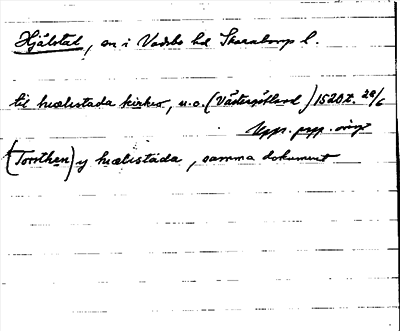 Hjälstad, sn i Vadsbo hd Skaraborgs l.
til hælistada kirkio, u.o. (Västergötland) 1520 28/6
Upps. papp. orig
(Torsthen) y hælistada, samma dokument